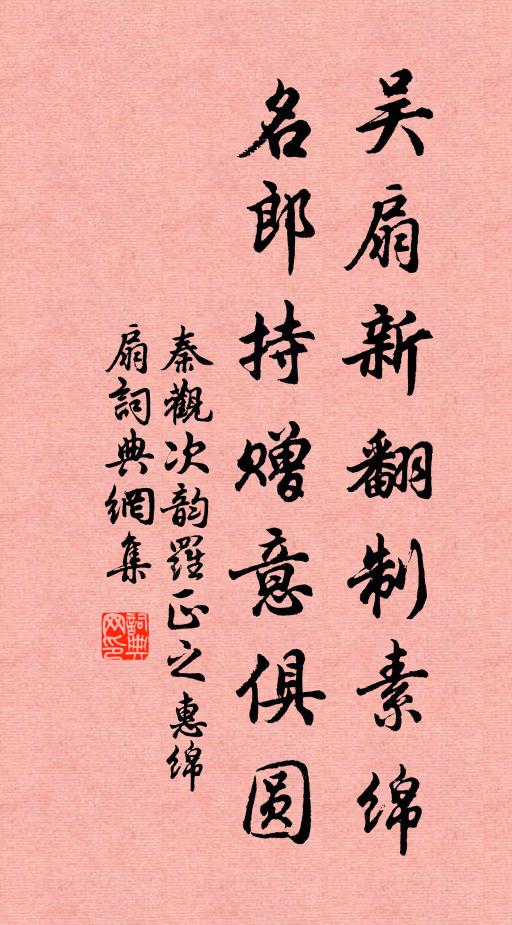 吴扇新翻制素绵
名郎持赠意俱圆
秦觀次韵羅正之惠绵
扇詞典網集
詞典网印